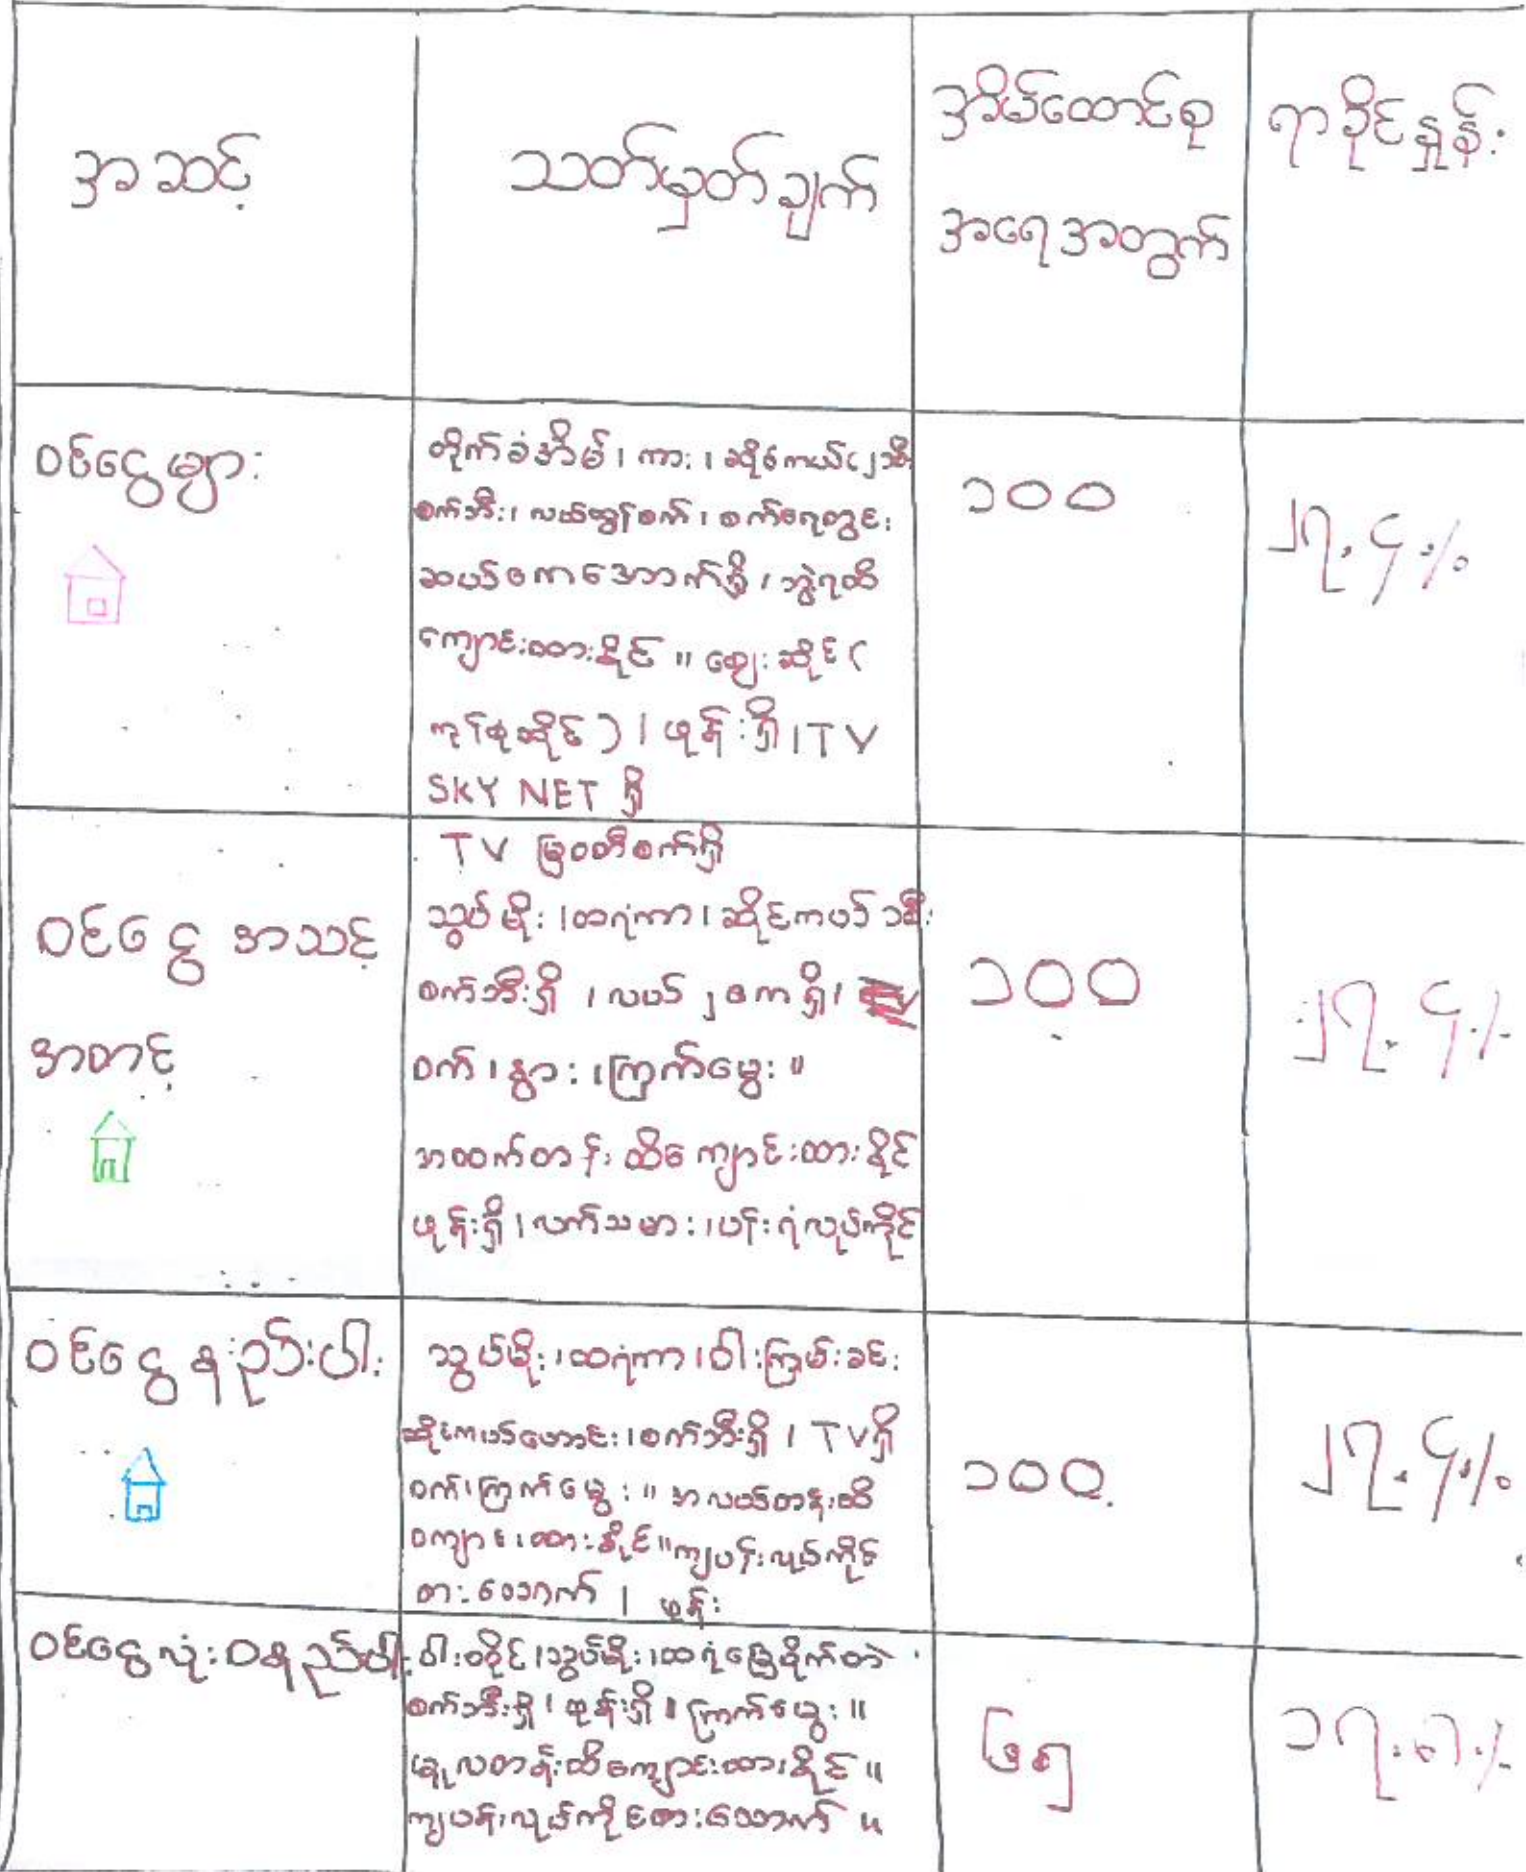 အဆင့်
သတ်မှတ်ချက်
အိမ်ထောင်စု
အရေအတွက်
ရာခိုင်နှုန်း
ဝင်ငွေများ
တိုက်ခံအိမ်၊ ကား၊ ဆိုင်ကယ်၂စီး
စက်ဘီး၊ လယ်ထွန်စက်၊ စက်ရေတွင်း
ဆယ်ဧကအောက်ရှိ၊ ဘွဲ့ရထိ
ကျောင်းထားနိုင်။ ဈေးဆိုင် (
ကုန်စုံဆိုင်) ၊ ဖုန်းရှိ၊ TV
SKY NET ရှိ
၁၀၀
၂၇.၄%
ဝင်ငွေ အသင့်
အတင့်
TV မြဝတီစက်ရှိ
သွပ်မိုး၊ ထရံကာ၊ ဆိုင်ကယ်၁စီး
စက်ဘီးရှိ ၊ လယ် ၂ဧက ရှိ၊
ဝက်၊ နွား၊ ကြက်မွေး။
အထက်တန်းထိကျောင်းထားနိုင်
ဖုန်းရှိ၊ လက်သမား၊ ပန်းရံလုပ်ကိုင်
၁၀၀
၂၇.၄%
ဝင်ငွေနည်းပါး
သွပ်မိုး၊ ထရံကာ၊ ဝါးကြမ်းခင်း
ဆိုင်ကယ်ဟောင်း၊ စက်ဘီးရှိ ၊ TVရှိ
ဝက်၊ ကြက်မွေး။ အလယ်တန်းထိ
ကျောင်းထားနိုင်။ ကျပန်းလုပ်ကိုင်
စားသောက် ၊ ဖုန်း
၁၀၀
၂၇.၄%
ဝင်ငွေလုံးဝနည်းပါး
ဝါးတိုင်၊ သွပ်မိုး၊ ထရံ မြေစိုက်တဲ
စက်ဘီးရှိ၊ ဖုန်းရှိ။ ကြက်မွေး။
မူလတန်းထိကျောင်းထားနိုင်။
ကျပန်းလုပ်ကိုင်စားသောက်။
၆၅
၁၇.၈%